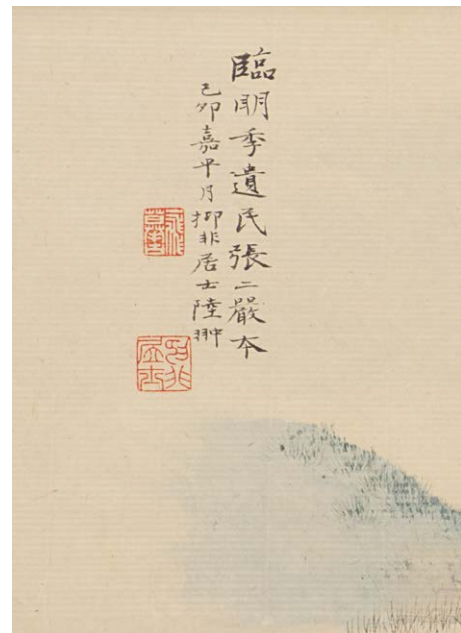 臨明季遺民張二嚴本
己卯嘉平月抑非居士陸翀